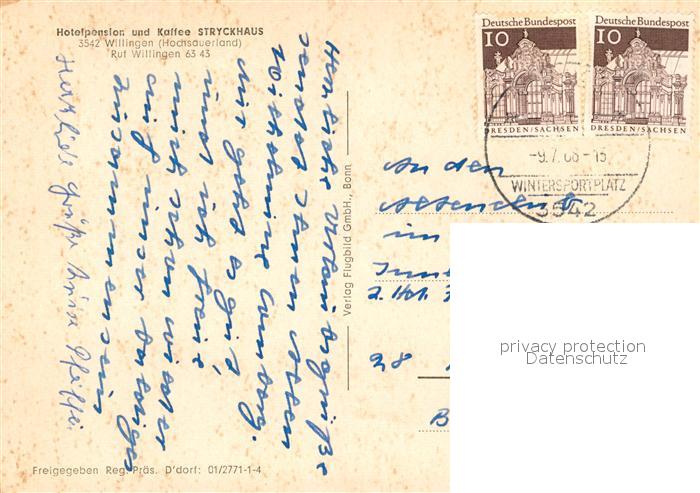 Hotelpension und Kaffee STRYCKHAUS
3542 Willingen (Hochsauerland)
Ruf Willingen 63 43
Deutsche Bundespost
10
DRESDEN/SACHSEN
Deutsche Bundespost
10
DRESDEN/SACHSEN
-9.7.68-15
WINTERSPORTPLATZ
3542
Herzliche Urlaubsgrüße
sendet Ihnen allen
Mir geht es gut,
und ich freue
mich schon wieder
auf unser baldiges
Zusammensein
Herzliche Grüße
Verlag Flugbild GmbH., Bonn
An den
im
2.
28
B
privacy protection
Datenschutz
Freigegeben Reg. Präs. D'dorf: 01/2771-1-4